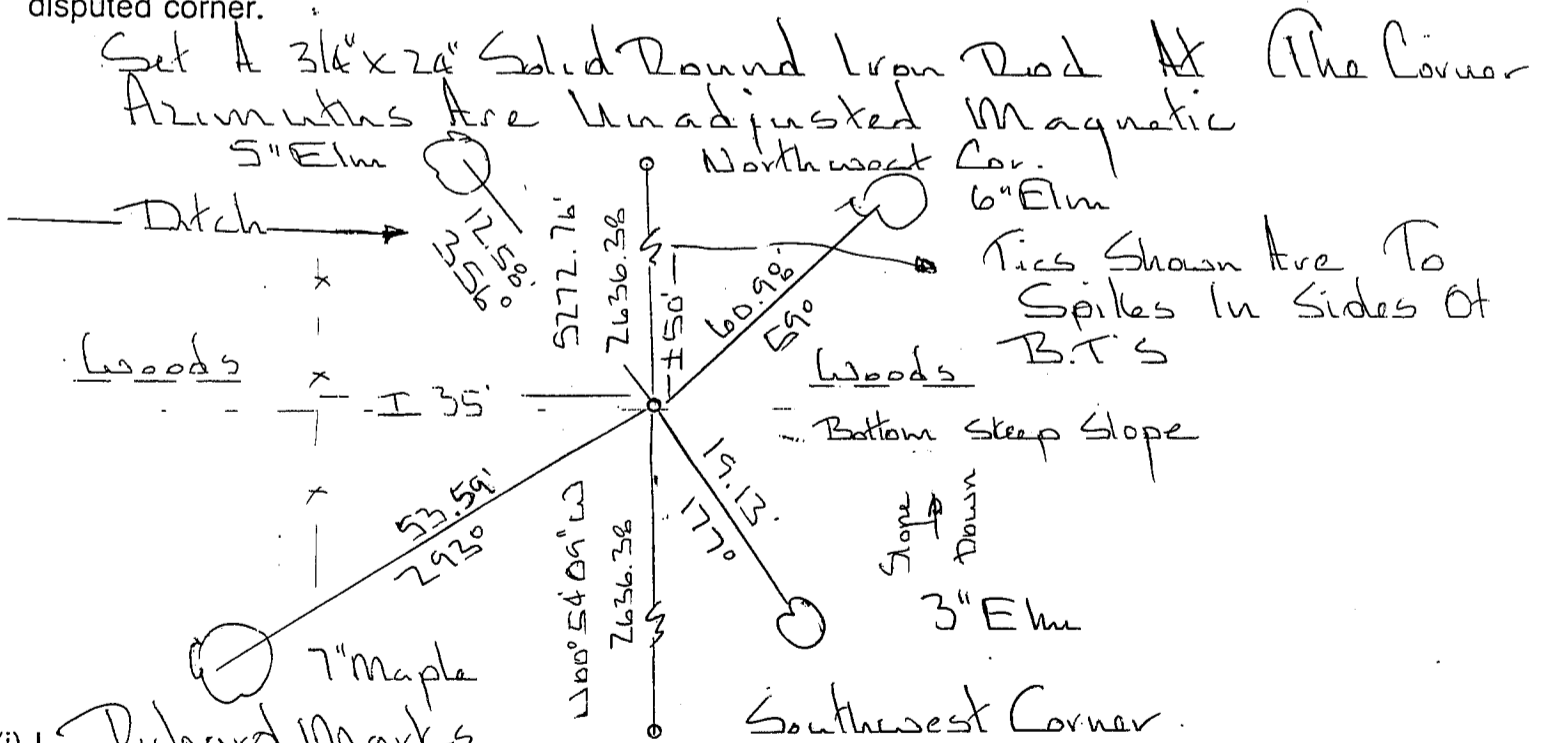 disputed corner.
Set A 3/4" x 24" Solid Round Iron Rod At The Corner
Azimuths Are Unadjusted Magnetic
5" Elm
Northwest Cor.
6" Elm
Ditch
12.50'
356°
5272.76'
2636.38
±50'
60.98'
59°
Ties Shown Are To
Spikes In Sides Of
B.T'S
Woods
Woods
± 35'
Bottom Steep Slope
53.59'
293°
19.13'
177°
N00°54'09"W
2636.38
Slope
Down
3" Elm
7" Maple
Southwest Corner.
Richard Marks